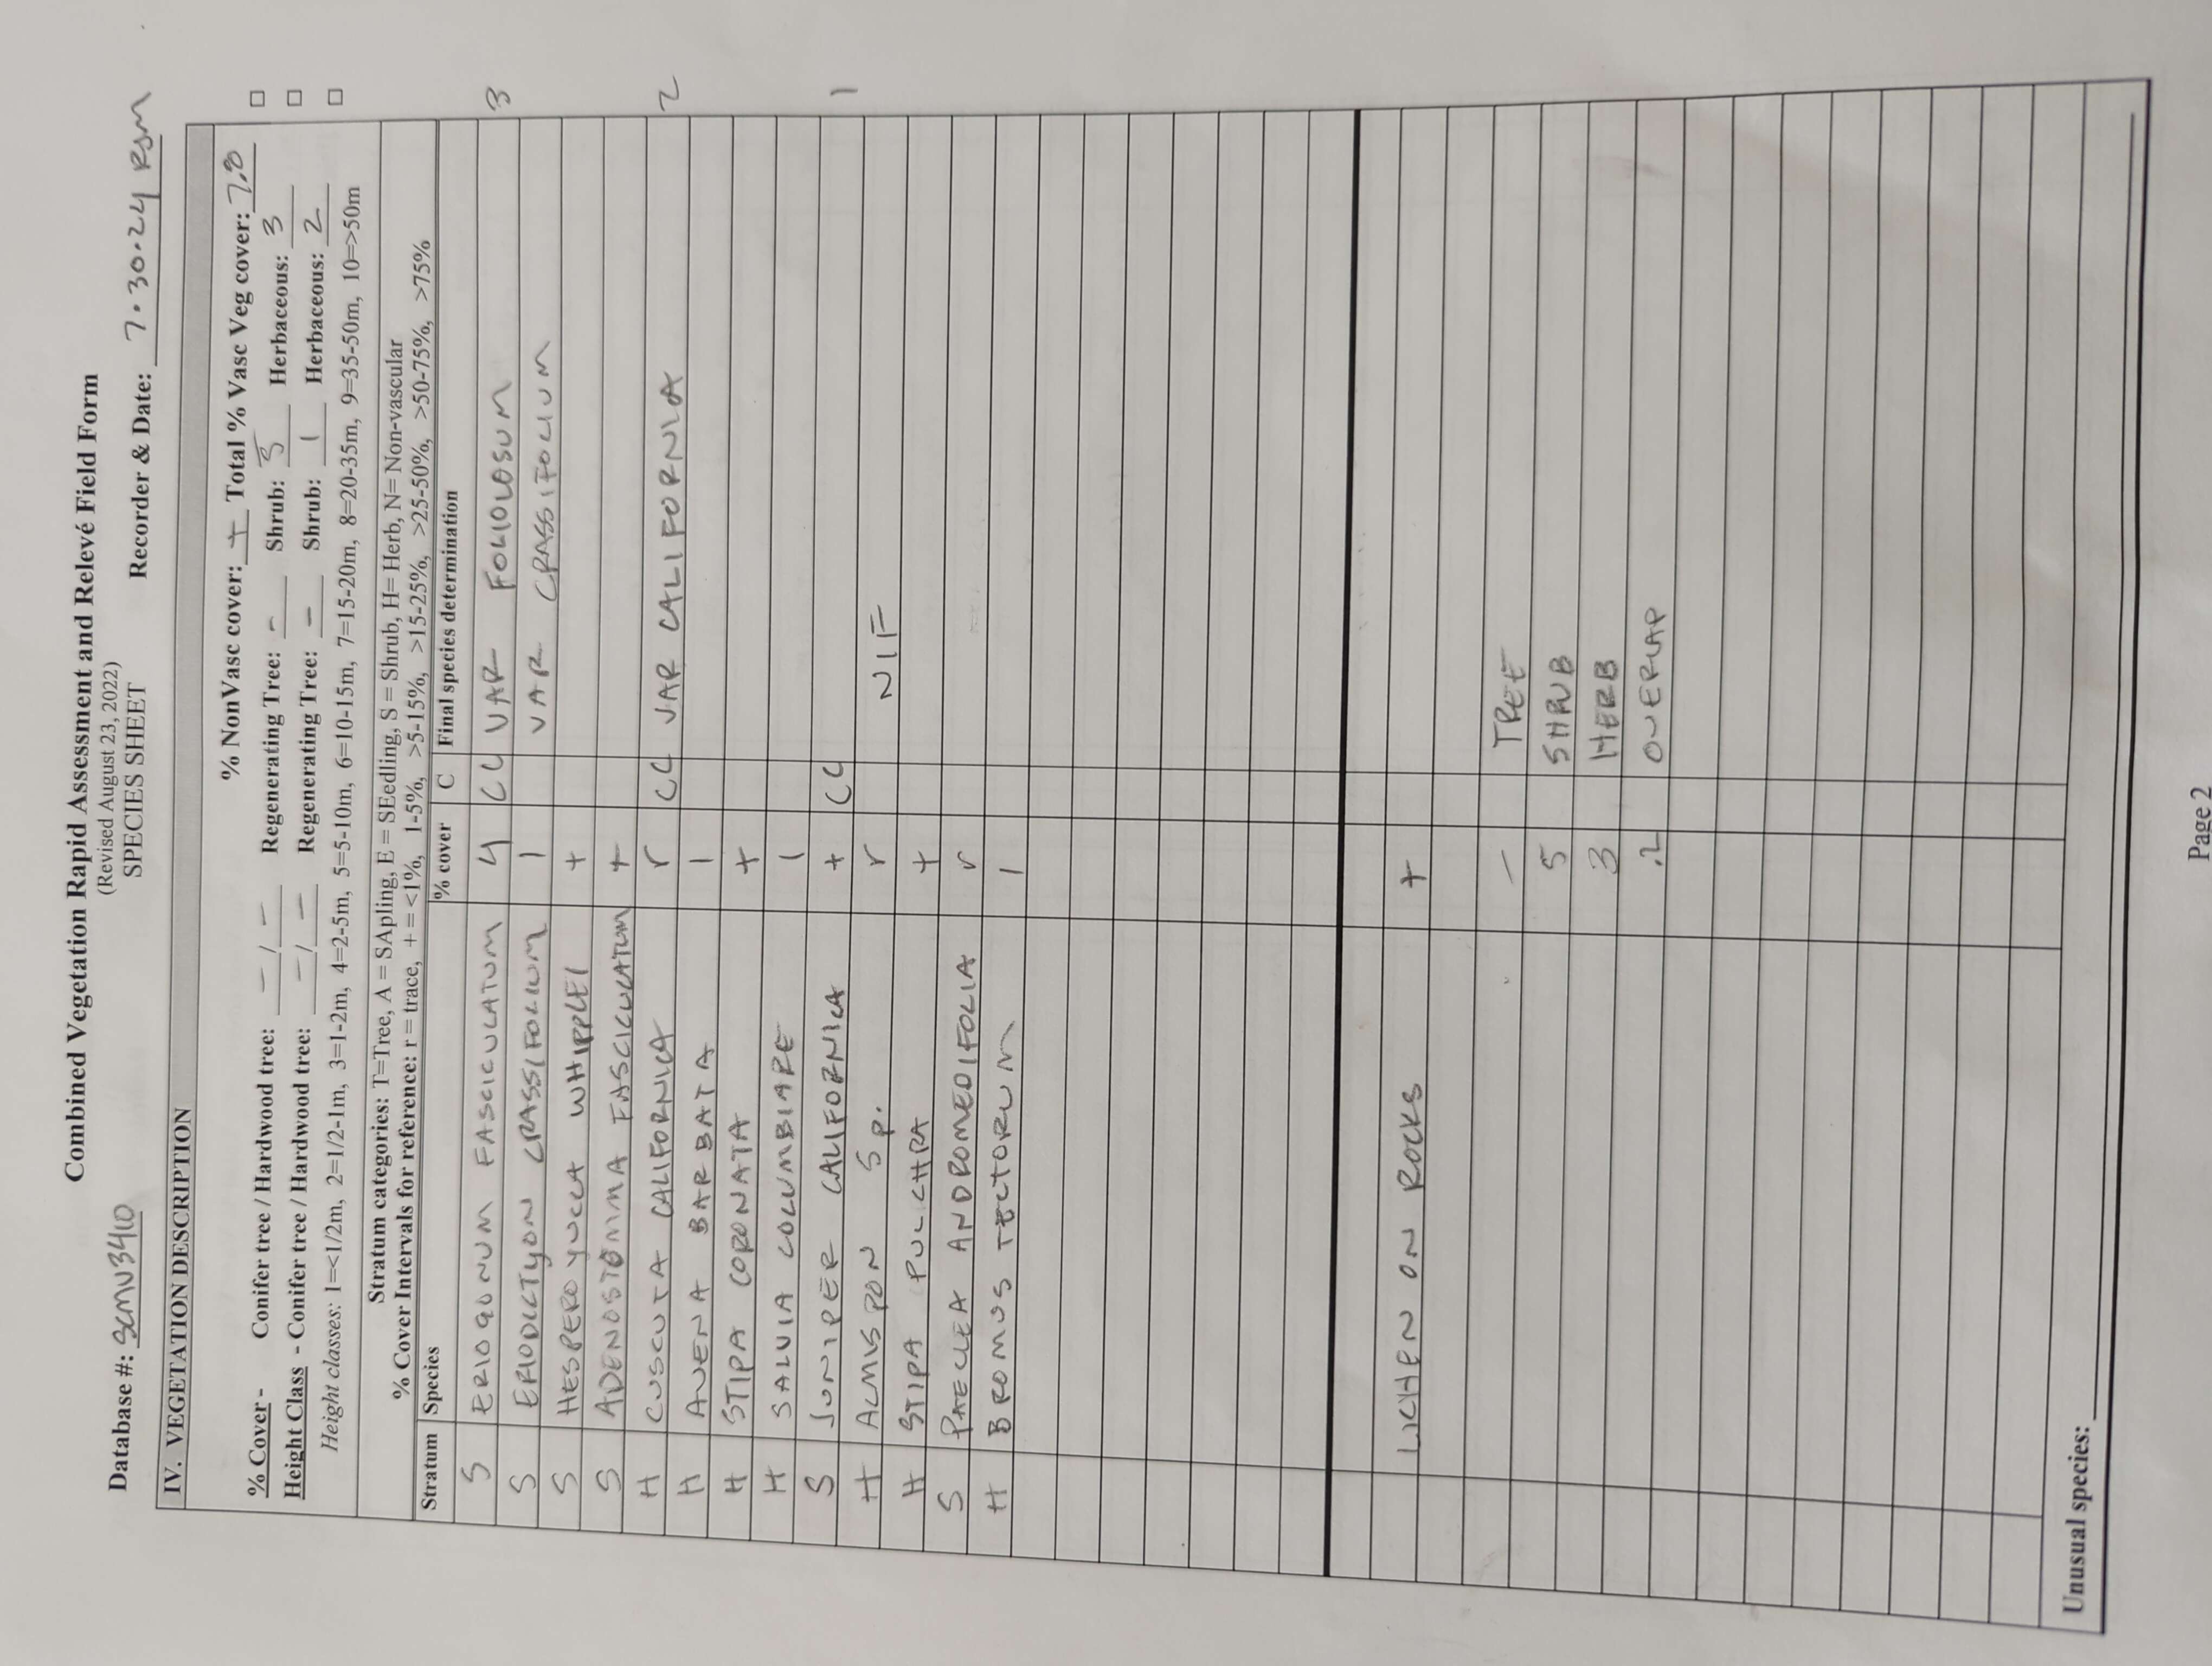 Combined Vegetation Rapid Assessment and Relevé Field Form
(Revised August 23, 2022)
SPECIES SHEET
Database #: SCMV3410 Recorder & Date: 7.30.24 RSM
IV. VEGETATION DESCRIPTION
% NonVasc cover: + Total % Vasc Veg cover: 7.8
% Cover - Conifer tree / Hardwood tree: - / - Regenerating Tree: - Shrub: 5 Herbaceous: 3
Height Class - Conifer tree / Hardwood tree: - / - Regenerating Tree: - Shrub: 1 Herbaceous: 2
Height classes: 1=<1/2m, 2=1/2-1m, 3=1-2m, 4=2-5m, 5=5-10m, 6=10-15m, 7=15-20m, 8=20-35m, 9=35-50m, 10=>50m
Stratum categories: T=Tree, A = SApling, E = SEedling, S = Shrub, H= Herb, N= Non-vascular
% Cover Intervals for reference: r = trace, + = <1%, 1-5%, >5-15%, >15-25%, >25-50%, >50-75%, >75%
Stratum Species % cover C Final species determination
S ERIOGONUM FASCICULATUM 4 CC VAR FOLIOLOSUM 3
S ERIODICTYON CRASSIFOLIUM 1 VAR CRASSIFOLIUM
S HESPEROYUCCA WHIPPLEI +
S ADENOSTOMMA FASCICULATUM +
H CUSCUTA CALIFORNICA r CC VAR CALIFORNIA 2
H AVENA BARBATA 1
H STIPA CORONATA +
H SALVIA COLUMBIARE 1
S JUNIPER CALIFORNICA + CC 1
H ACMISPON Sp. r NIF
H STIPA PULCHRA +
S PAECLEA ANDROMEDIFOLIA r
H BROMUS TECTORUM 1
LICHEN ON ROCKS +
- TREE
5 SHRUB
3 HERB
.2 OVERLAP
Unusual species:
Page 2